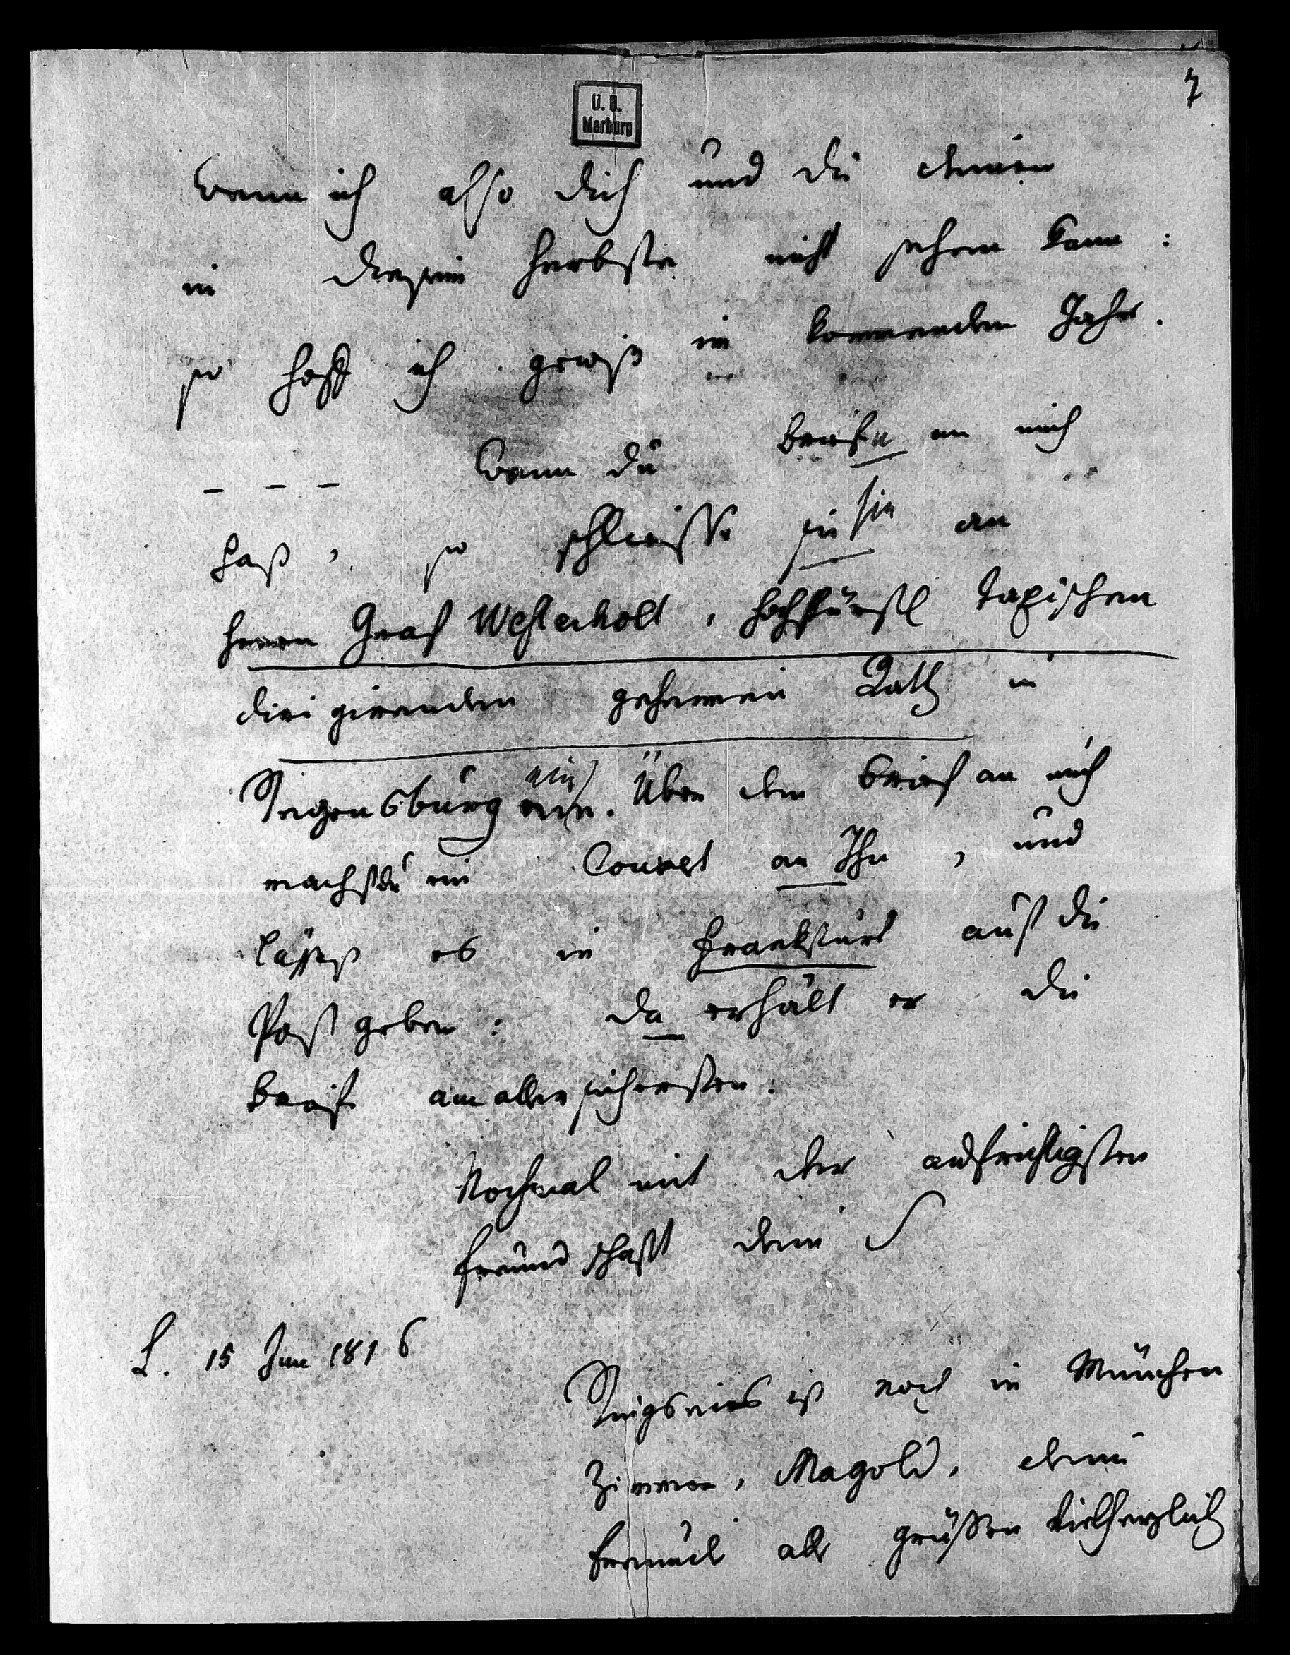 7
U. B.
Marburg
Wenn ich also dich und die deinen
in diesem Herbste nicht sehen kann:
so hoff ich gewiß im kommenden Jahr.
_ _ _ Wenn du Briefe an mich
hast, so schliesse sie sie an
Herrn Graf Westerholt, hochfürstl Taxischen
dirigirenden geheimen Rath in
Regensburg ein ein. Über den Brief an mich
machst du ein Couvert an Ihn, und
lässest es in Frankfurt auf die
Post geben: da erhält er die
Briefe am allersichersten.
Nochmal mit der aufrichtigsten
Freundschaft dein S
L. 15 Jun 1816
Ringseis ist noch in München
Zimmer, Magold, deine
Freunde alle grüssen vielherzlich